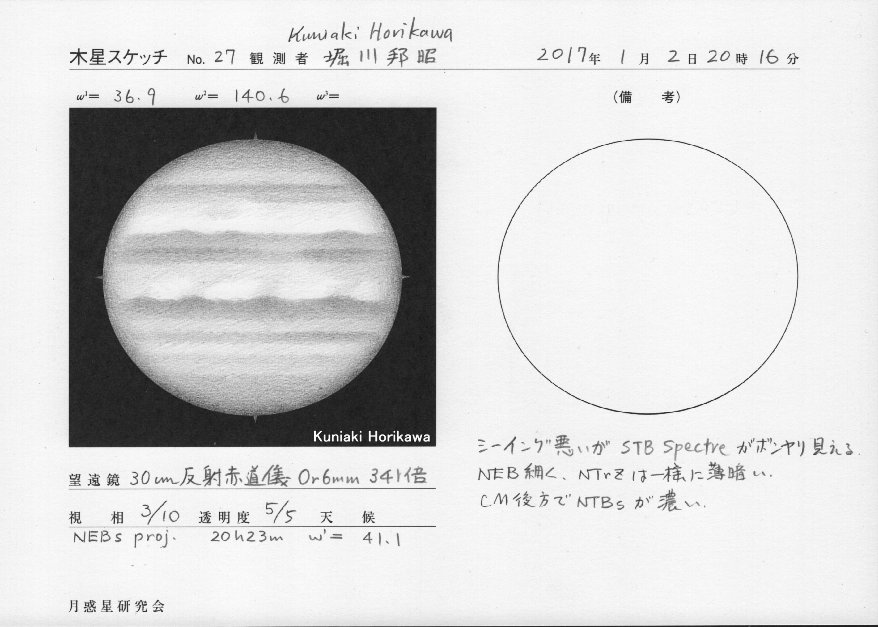 Kuniaki Horikawa
木星スケッチ No. 27 観測者 堀川邦昭 2017年 1月 2日 20時 16分
ω¹= 36.9 ω²= 140.6 ω³=
(備 考)
Kuniaki Horikawa
シーイング悪いが STB Spectre がボンヤリ見える.
NEB細く、NTrZは一様に薄暗い.
CM後方でNTBsが濃い.
望遠鏡 30cm反射赤道儀 Or6mm 341倍
視 相 3/10 透明度 5/5 天 候
NEBs proj. 20h23m ω¹= 41.1
月惑星研究会